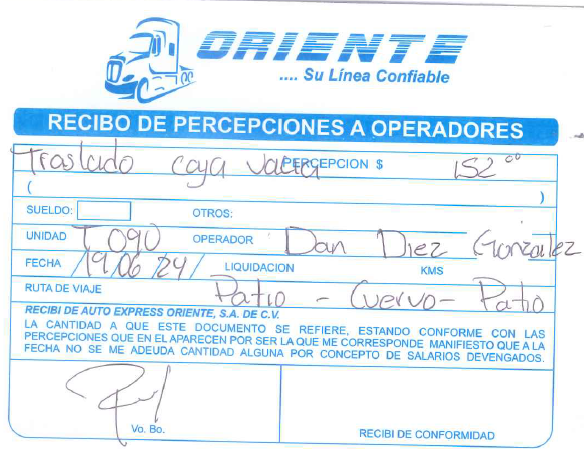 ORIENTE
.... Su Línea Confiable
RECIBO DE PERCEPCIONES A OPERADORES
Traslado caja vacia PERCEPCION $ 152 00
( )
SUELDO: OTROS:
UNIDAD T 090 OPERADOR Dan Diez Gonzalez
FECHA /19/06/24/ LIQUIDACION KMS
RUTA DE VIAJE Patio - Cuervo - Patio
RECIBI DE AUTO EXPRESS ORIENTE, S.A. DE C.V.
LA CANTIDAD A QUE ESTE DOCUMENTO SE REFIERE, ESTANDO CONFORME CON LAS
PERCEPCIONES QUE EN EL APARECEN POR SER LA QUE ME CORRESPONDE MANIFIESTO QUE A LA
FECHA NO SE ME ADEUDA CANTIDAD ALGUNA POR CONCEPTO DE SALARIOS DEVENGADOS.
Vo. Bo.
RECIBI DE CONFORMIDAD